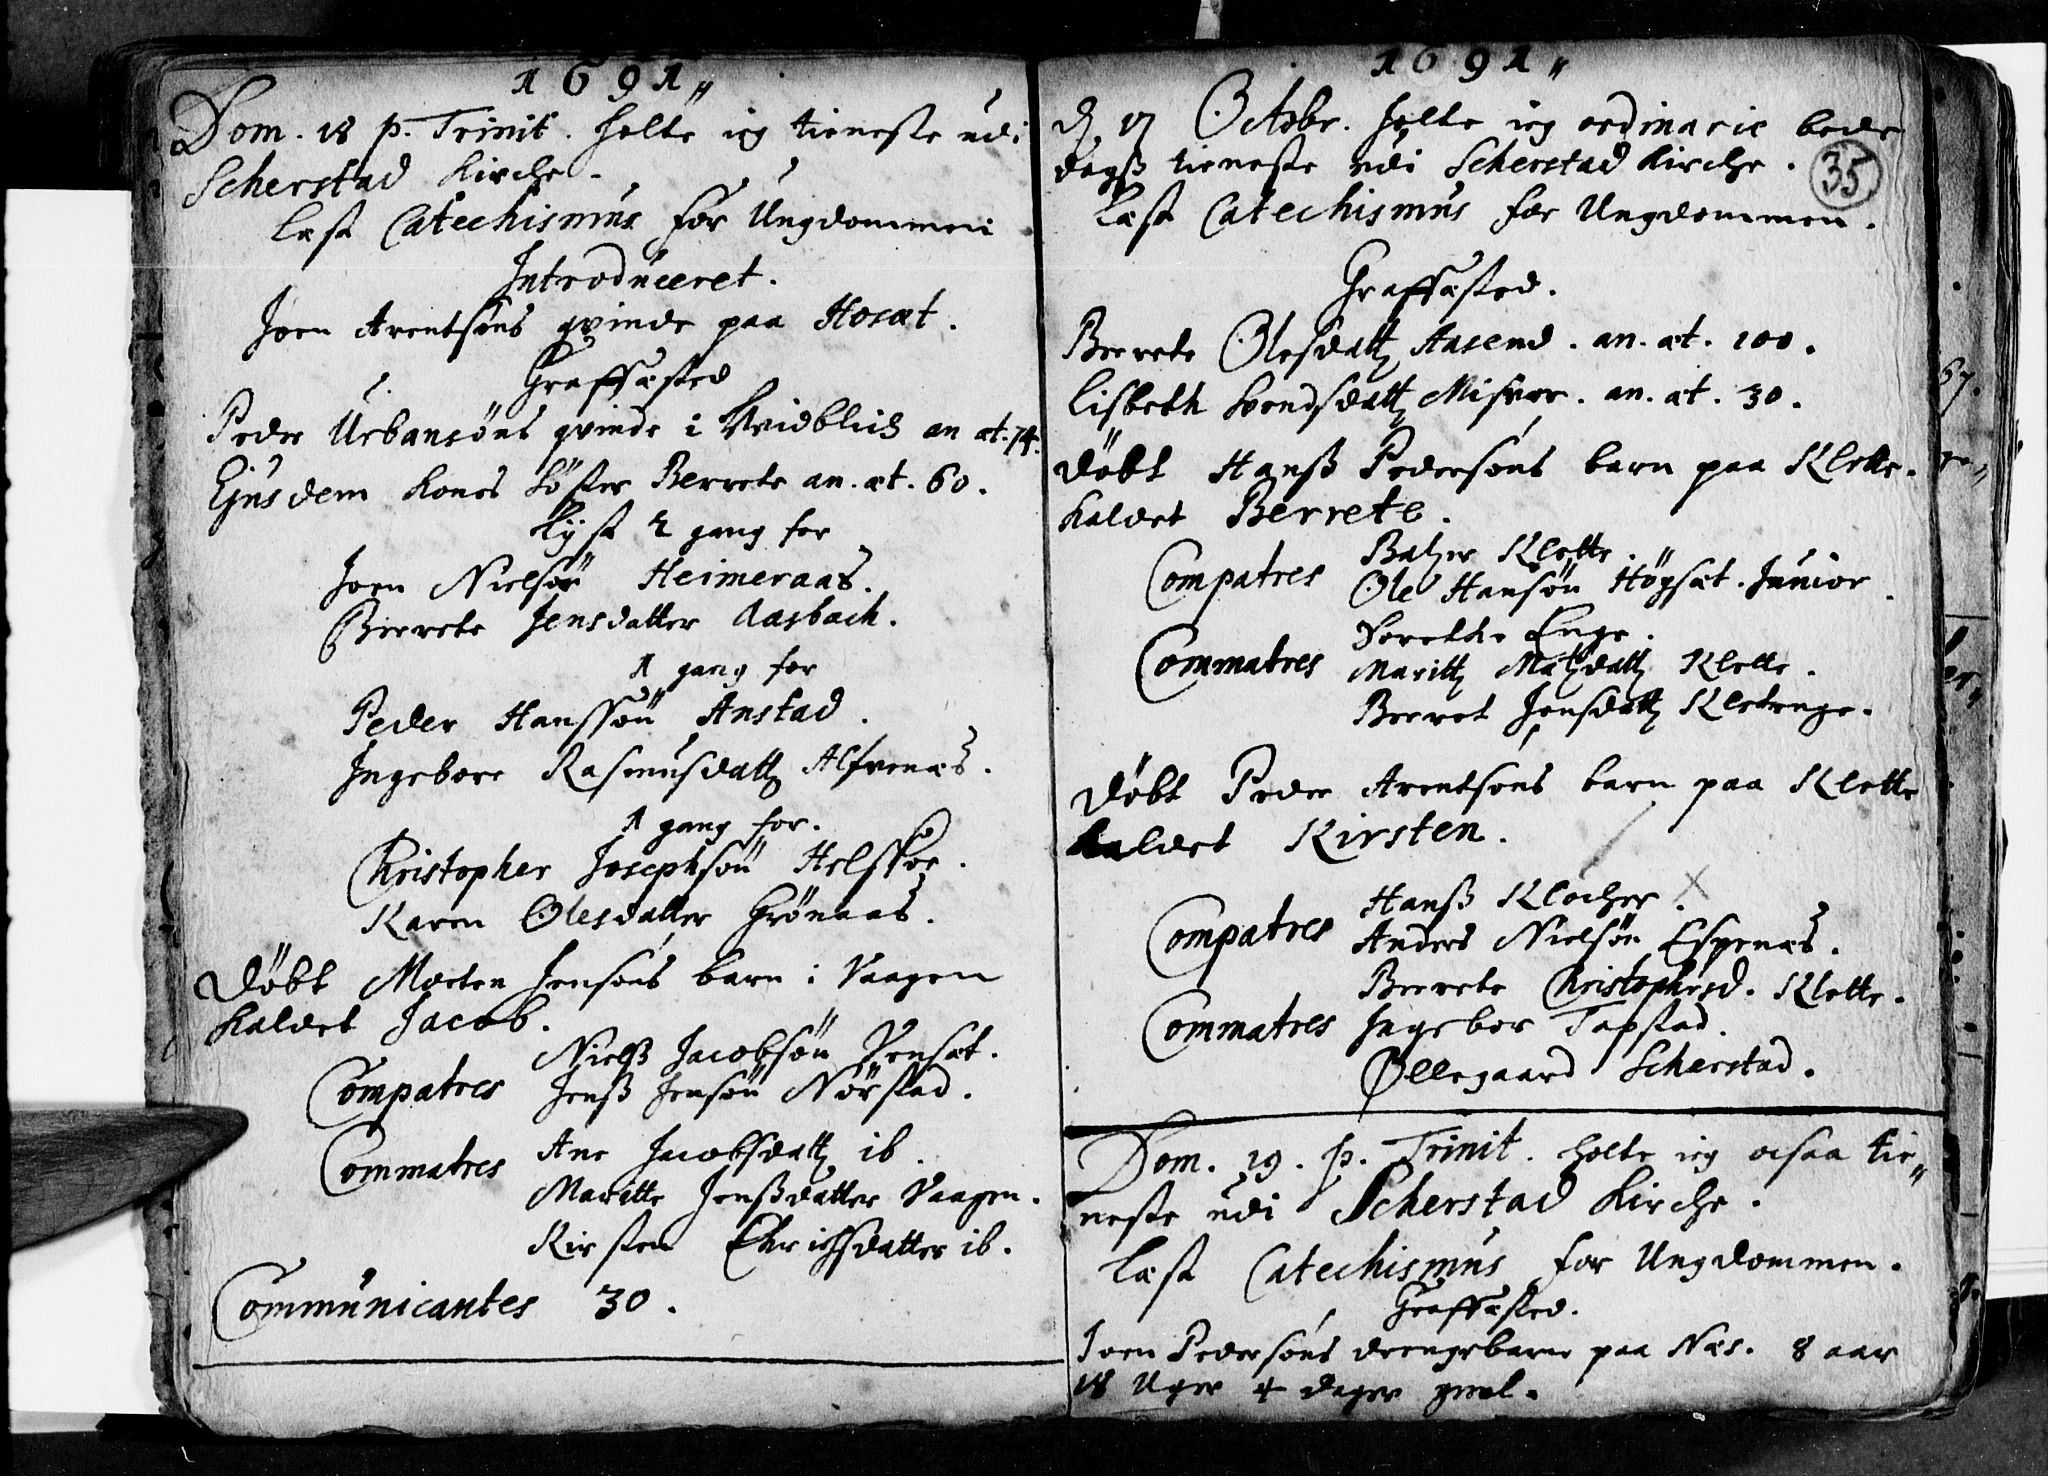 1691„
Dom. 18 p. Trinit. holte ieg tieneste udi
Scherstad Kirche.
læst Catechismus for Ungdommen
Introduceret.
Joen Arentsøns qvinde paa Hosæt.
Graffæsted
Peder Urbansøns qvinde i Hvidblick an. æt. 74.
Ejusdem Kones Søster Berrete an. æt. 60.
Lyst 2 gang for
Joen Nielsøn Heimeraas.
Berrete Jensdatter Aasbach.
1 gang for
Peder Hanssøn Anstad.
Ingebore Rasmusdatt Alfvenæs.
1 gang for.
Christopher Josephsøn Helskor.
Karen Olesdatter Grønaas.
Døbt Morten Jensøns barn i Vaagen
kaldet Jacob.
Compatres Nielß Jacobsøn Vensæt.
Jenß Jensøn Nørstad.
Commatres Ane Jacobsdatt ib.
Maritte Jenßdatter Vaagen.
Kirsten Ehrichsdatter ib.
Communicantes 30.
1691„
35
d. 17 Octobr. holte ieg ordinarie bede
dagß tieneste udi Scherstad Kirche.
læst Catechismus for Ungdommen.
Graffæsted.
Berrete Olesdatt Aasend. an. æt. 100.
Lisbeth Svendsdatt Misvær. an. æt. 30.
Døbt Hanß Pedersøns barn paa Klette.
kaldet Berrete.
Compatres Baltzer Klette.
Ole Hansøn Høgsæt. Junior.
Dorethe Enge.
Commatres Maritt Matzdatt Klette.
Berret Jensdatt Kletenge.
Døbt Peder Arentsøns barn paa Klette
kaldet Kirsten.
Compatres Hanß Klocher.
Anders Nielsøn Espenæs.
Berrete Christophersd. Klette.
Commatres Ingebor Tapstad.
Øllegaard Scherstad.
Dom. 19. p. Trinit. holte ieg ocsaa tie„
neste udi Scherstad Kirche.
læst Catechismus for Ungdommen.
Graffæsted.
Joen Pedersøns drengebarn paa Næs. 8 aar
18 Uger 4 dager gml.